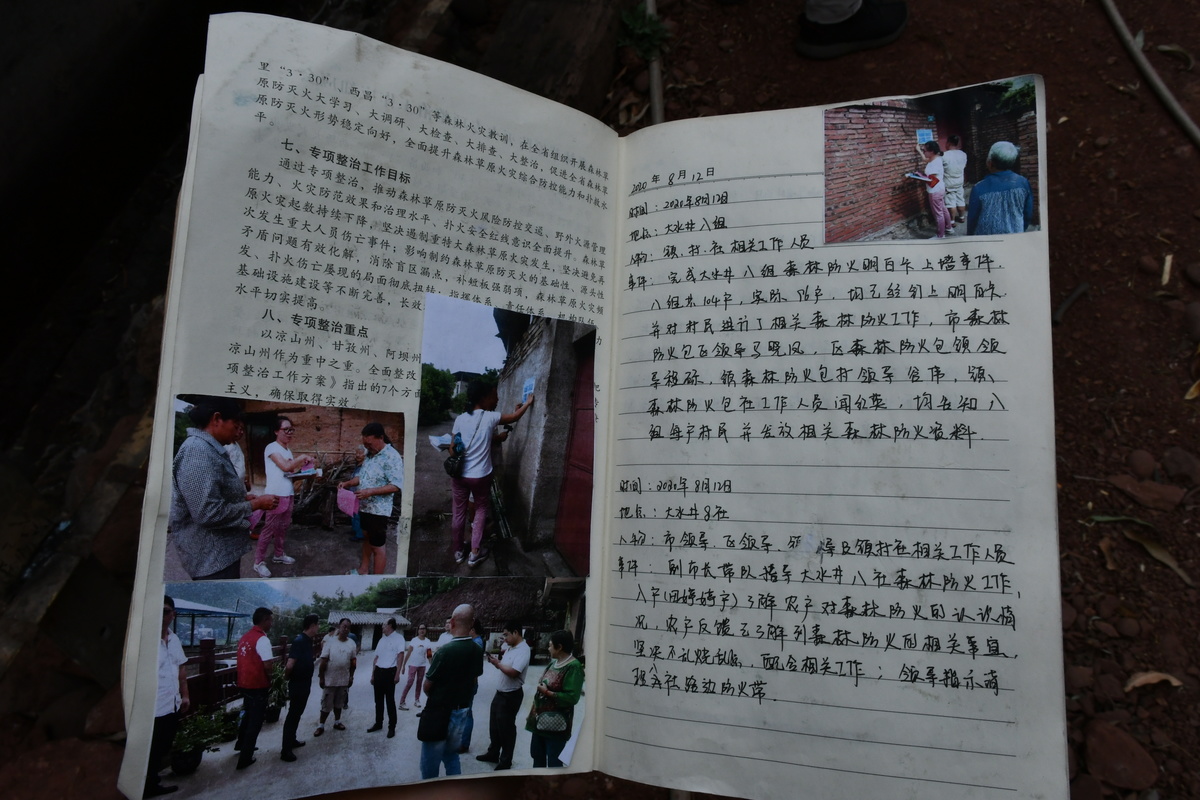 里“3·30”、西昌“3·30”等森林火灾教训，在全省组织开展森林草
原防灭火大学习、大调研、大检查、大排查、大整治，促进全省森林草
原防灭火形势稳定向好，全面提升森林草原火灾综合防控能力和扑救水
平。
七、专项整治工作目标
通过专项整治，推动森林草原防灭火风险防控、野外火源管理
能力、火灾防范效果和治理水平、扑火安全红线意识全面提升。森林草
原火灾起数持续下降，坚决遏制重特大森林草原火灾发生，坚决避免再
次发生重大人员伤亡事件；影响制约森林草原防灭火的基础性、源头性
矛盾问题有效化解，消除盲区漏点、补短板强弱项，森林草原火灾频
发、扑火伤亡屡现的局面彻底扭转，指挥体系、责任体系、机构队伍
基础设施建设等不断完善，长效
水平切实提高。
八、专项整治重点
以凉山州、甘孜州、阿坝州
凉山州作为重中之重。全面整改
项整治工作方案》指出的7个方面
主义，确保取得实效
2020年8月12日
时间：2020年8月12日
地点：大水井八组
人物：镇、村、社相关工作人员
事件：完成大水井八组森林防火明白卡上墙事件.
八组共104户，实际76户，均已经钉上明白卡
并对村民进行了相关森林防火工作，市森林
防火包区领导马晓凤，区森林防火包镇领
导 ，镇森林防火包村领导 伟，镇、
森林防火包社工作人员闻红英，均告知八
组每户村民并发放相关森林防火资料.
时间：2020年8月12日
地点：大水井8社
人物：市领导、区领导、 区镇村社相关工作人员
事件：副市长带队指导大水井八社森林防火工作，
入户(田婷婷户)了解农户对森林防火的认识情
况，农户反馈已了解到森林防火的相关事宜，
坚决不乱烧乱 ，配合相关工作；领导指示清
理各社路边防火带.